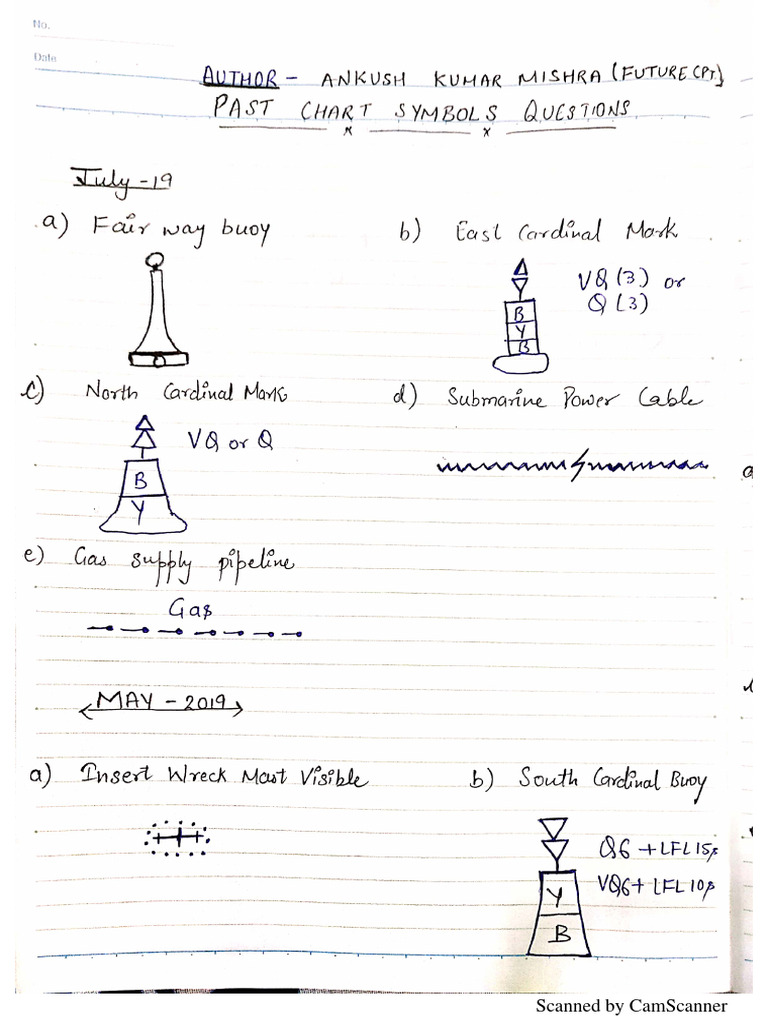 No.
Date
AUTHOR - ANKUSH KUMAR MISHRA (FUTURE CPT.)
PAST CHART SYMBOLS QUESTIONS
July-19
a) Fair way buoy
b) East Cardinal Mark
VQ(3) or
Q(3)
B
Y
B
c) North Cardinal Mark
VQ or Q
B
Y
d) Submarine Power Cable
e) Gas supply pipeline
Gas
MAY - 2019
a) Insert Wreck Mast Visible
b) South Cardinal Buoy
Q6 + LFL15s
VQ6+ LFL10s
Y
B
Scanned by CamScanner